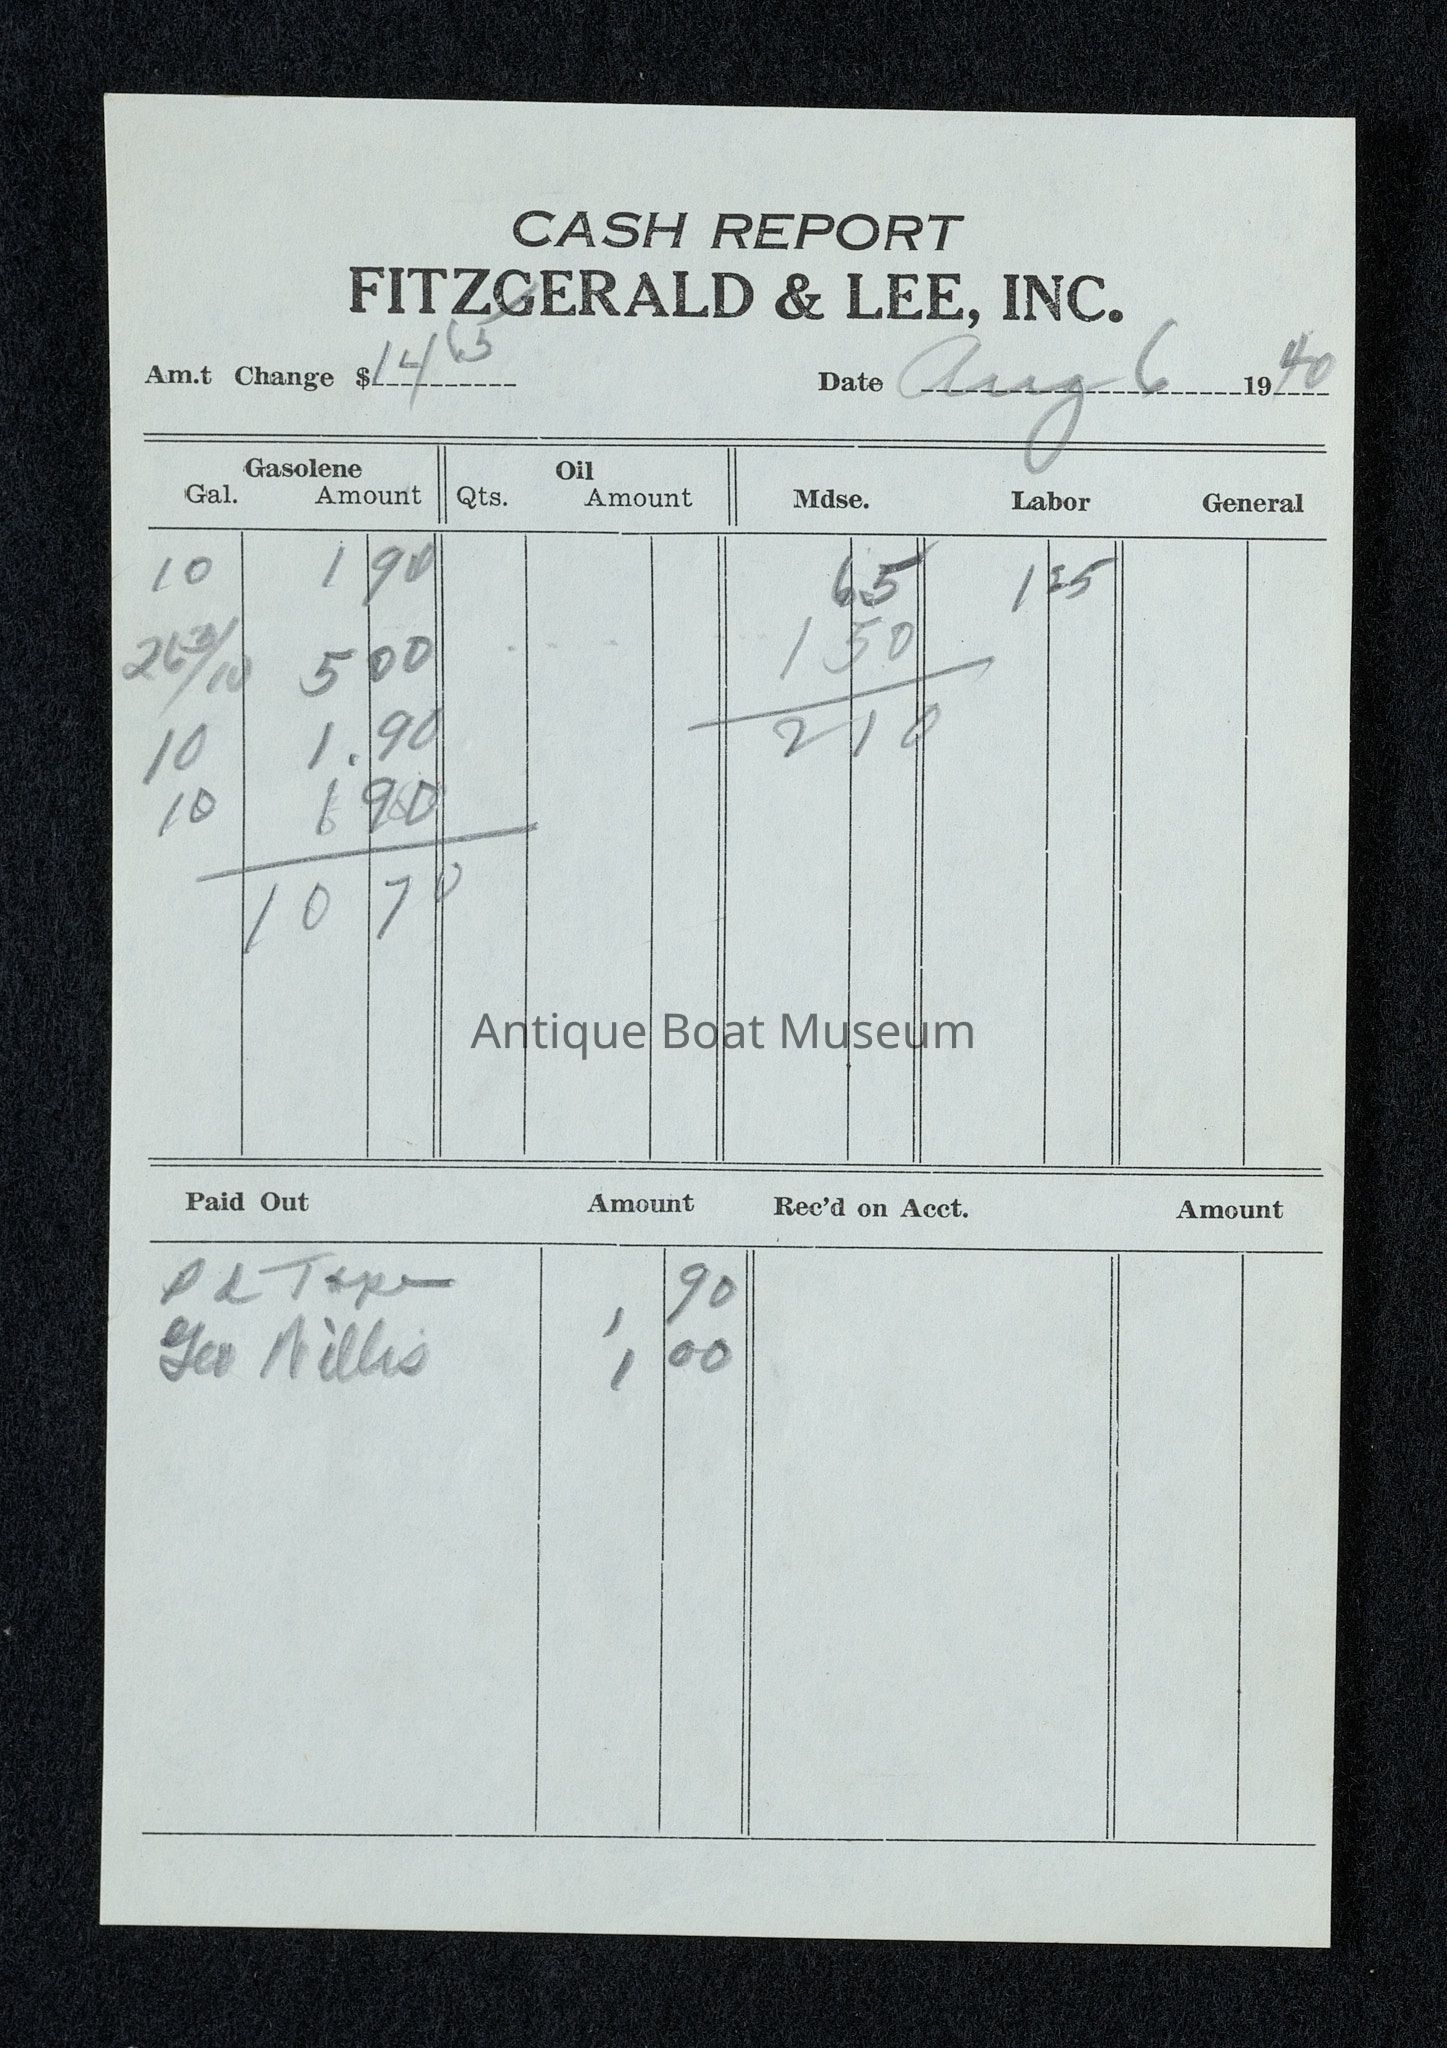 CASH REPORT
FITZGERALD & LEE, INC.
Am.t Change $ 14 65 Date Aug 6 19 40
Gasolene Oil
Gal. Amount Qts. Amount Mdse. Labor General
10 1 90 65 1 25
26 3/10 5 00 1 50
10 1.90 2 10
10 1 90
10 70
Antique Boat Museum
Paid Out Amount Rec'd on Acct. Amount
Pd Tape , 90
Geo Willis 1 00